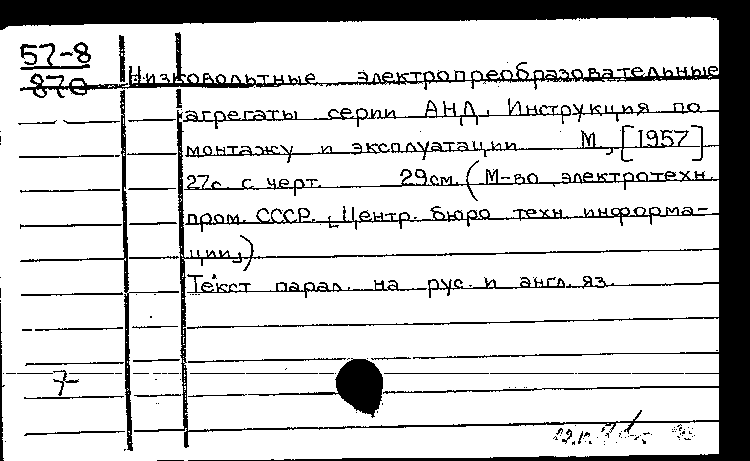 57-8
870
Низковольтные электропреобразовательные
агрегаты серии АНД. Инструкция по
монтажу и эксплуатации М, [1957]
27с. с черт. 29см. (М-во электротехн.
пром. СССР. Центр. бюро техн. информа-
ции.)
Текст парал. на рус. и англ. яз.
7